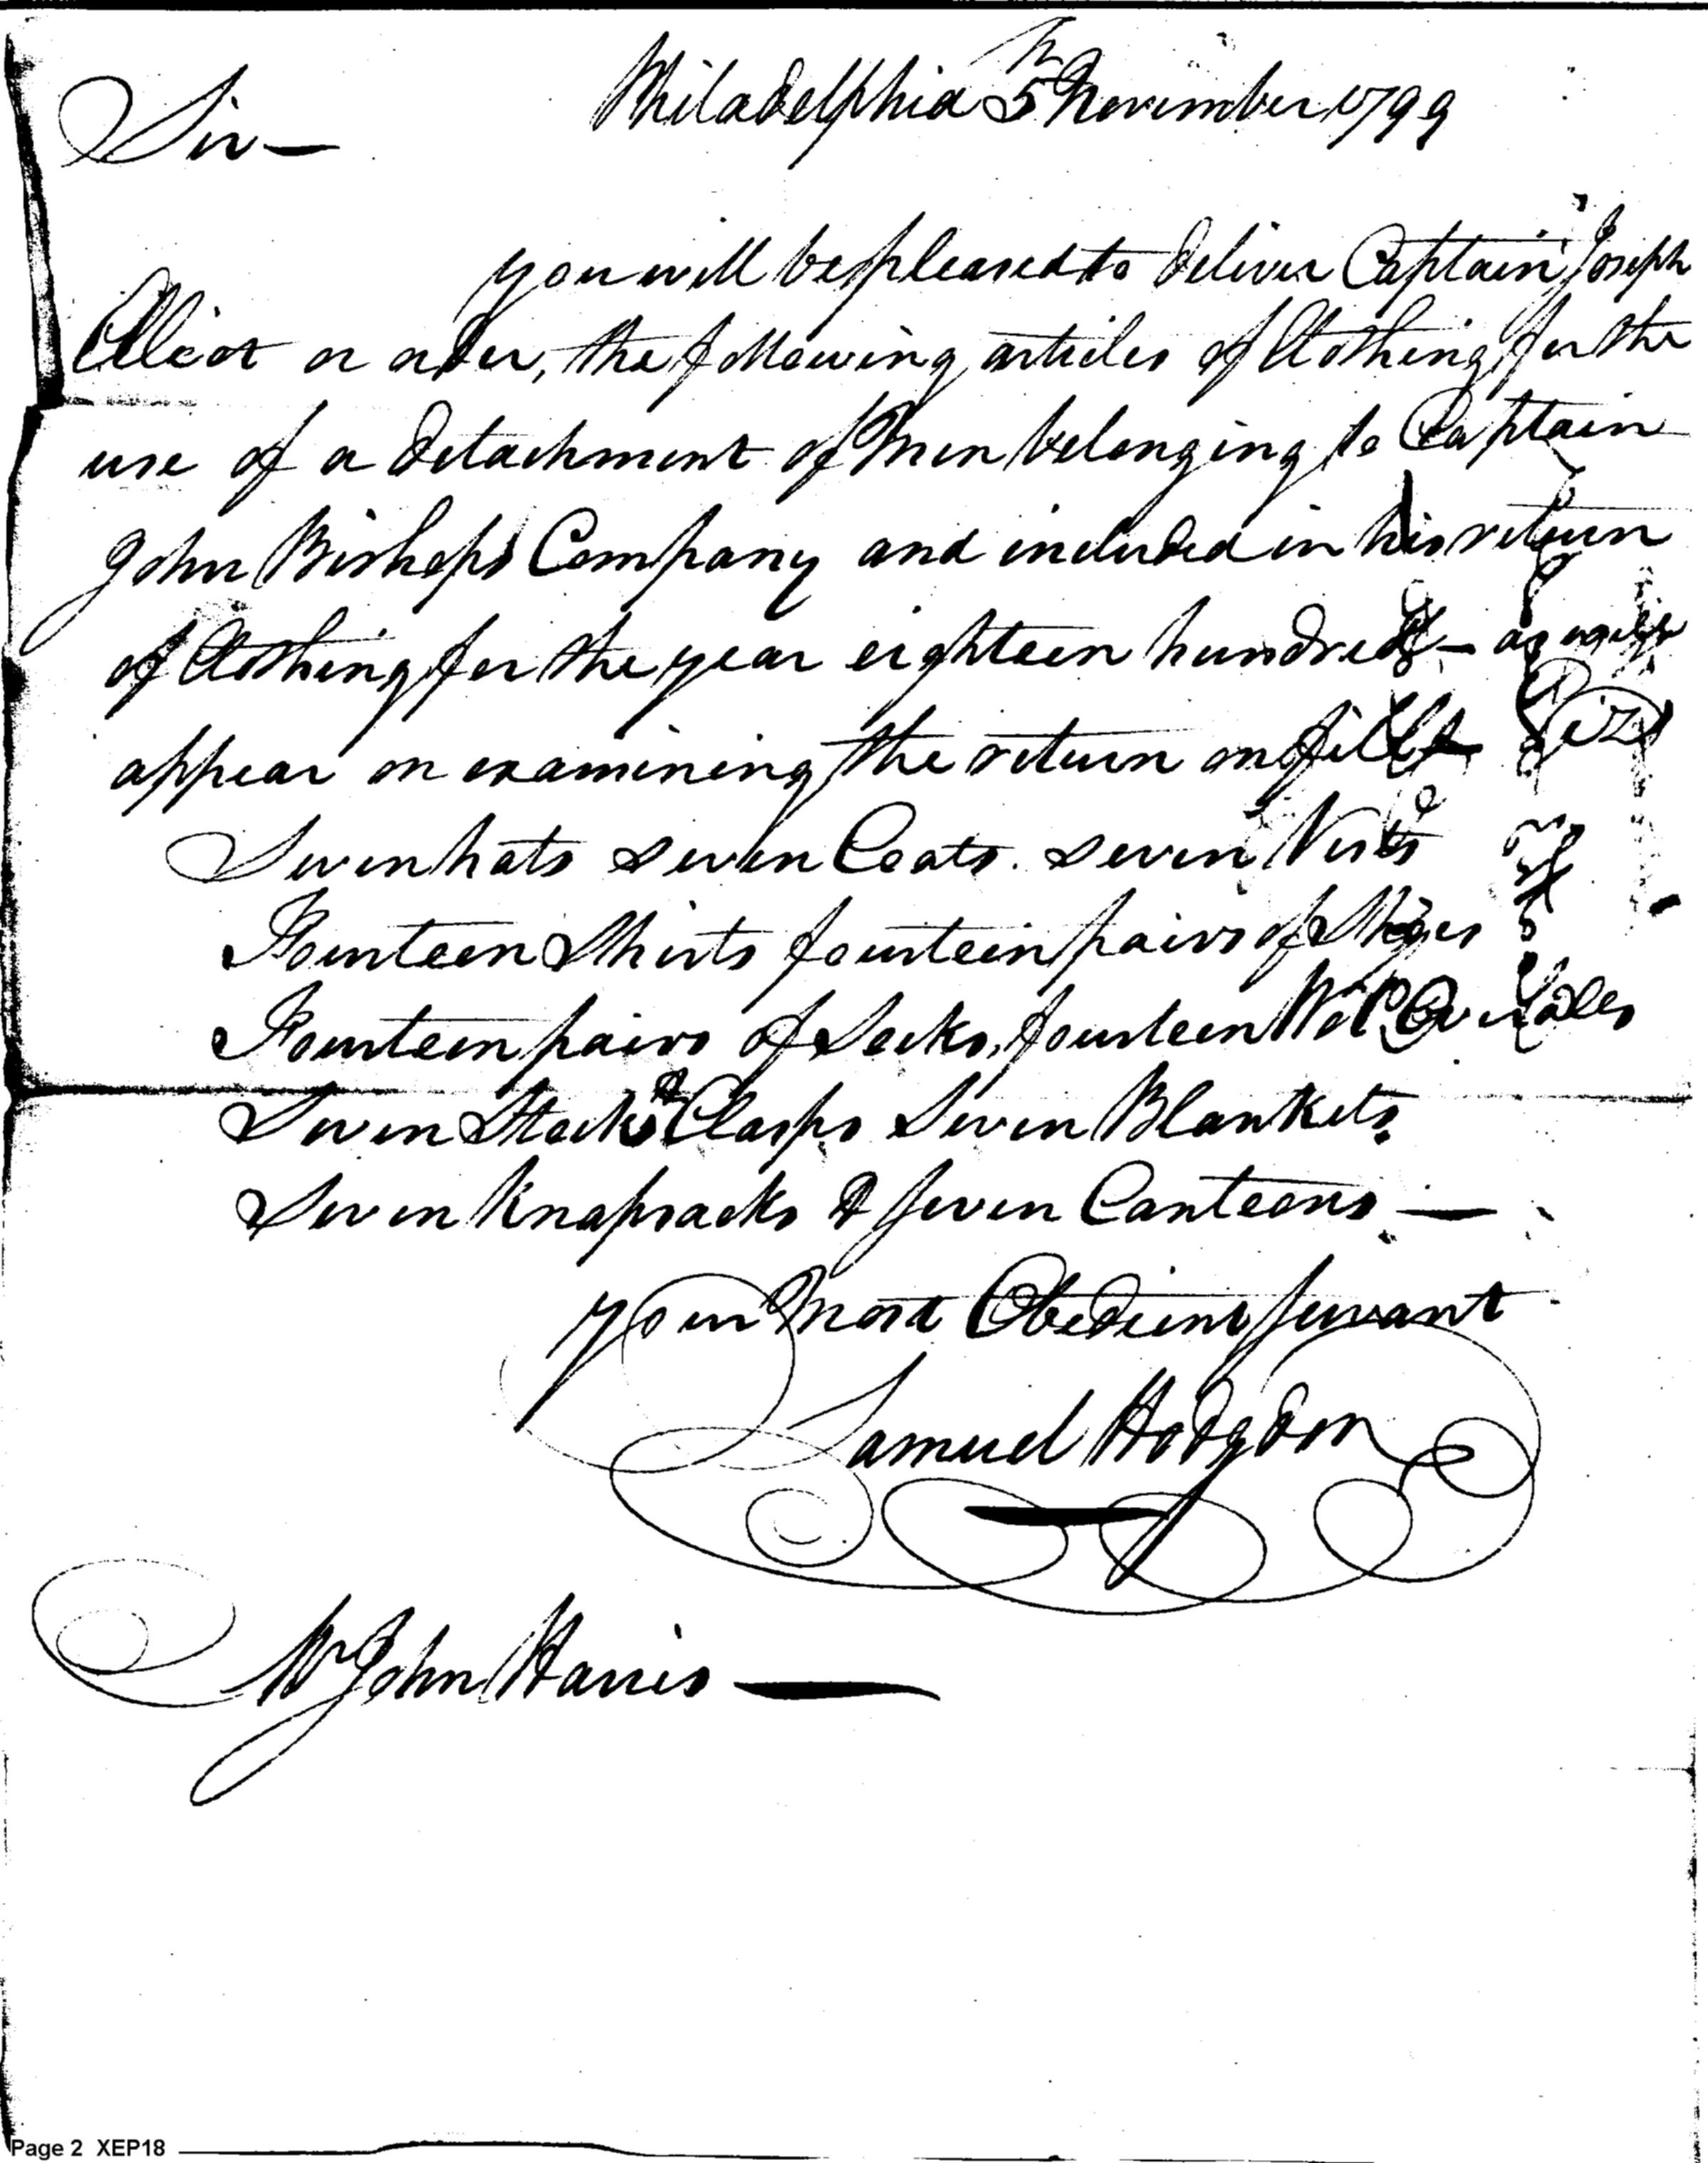 Philadelphia 5th November 1799
Sir —
you will be pleased to deliver Captain Joseph
Elliot or order, the following articles of Clothing for the
use of a detachment of Men belonging to Captain
John Bishops Company and included in his return
of Clothing for the year eighteen hundred — as will
appear on examining the return on file Viz
Seven hats seven Coats. seven Vests
Fourteen Shirts fourteen pairs of Shoes
Fourteen pairs of Socks, fourteen Wol. Overalls
Seven Stocks & Clasps Seven Blankets.
Seven Knapsacks & Seven Canteens —
your Most Obedient Servant
Samuel Hodgdon
Mr John Harris —
Page 2 XEP18